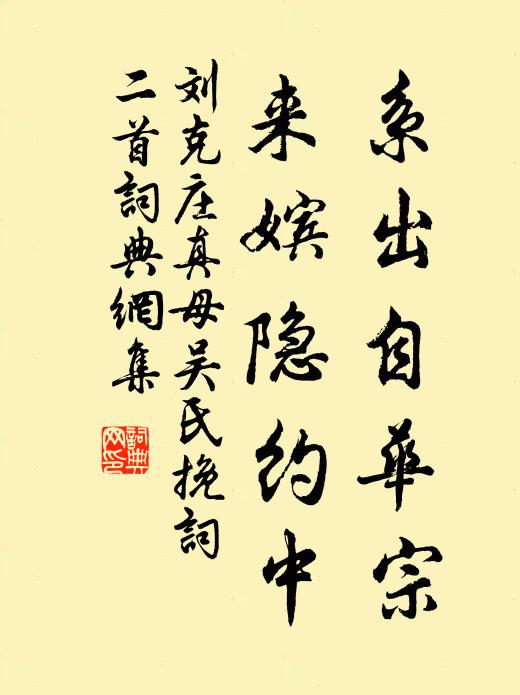 系出自华宗
来嫔隐约中
刘克庄真母吴氏挽詞
二首詞典網集
詞典
网印